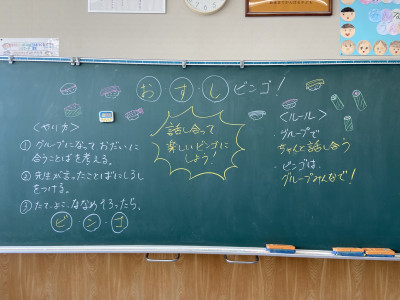 おすしビンゴ！
＜やり方＞
① グループになって おだいに
合うことばを考える。
② 先生が言ったことばにしるし
をつける。
③ たて、よこ、ななめ そろったら、
ビ・ン・ゴ
話し合って
楽しいビンゴに
しよう！
＜ルール＞
・グループで
ちゃんと話し合う
・ビンゴは、
グループみんなで！